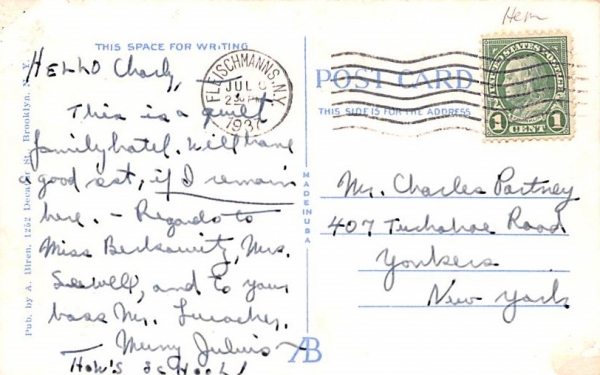 Hem
THIS SPACE FOR WRITING
HELLO Charly,
This is a quiet
family hotel. Will have
a good rest, if I remain
here. - Regards to
Miss Berkowitz, Mrs.
Sewell, and to your
boss Mr.
Julius
How's school!
Pub. by A. Biren, 1252 Decatur St. Brooklyn, N. Y.
FLEISCHMANNS, N.Y.
JUL
2 PM
1937
POST CARD
THIS SIDE IS FOR THE ADDRESS
MADE IN USA
AB
UNITED STATES POSTAGE
1 CENT 1
Mr. Charles Partney
407 Tuckahoe Road
Yonkers
New York